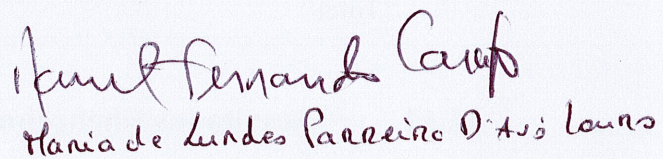 Manuel Fernando Canuto
Maria de Lurdes Parreira D'Avó Louro